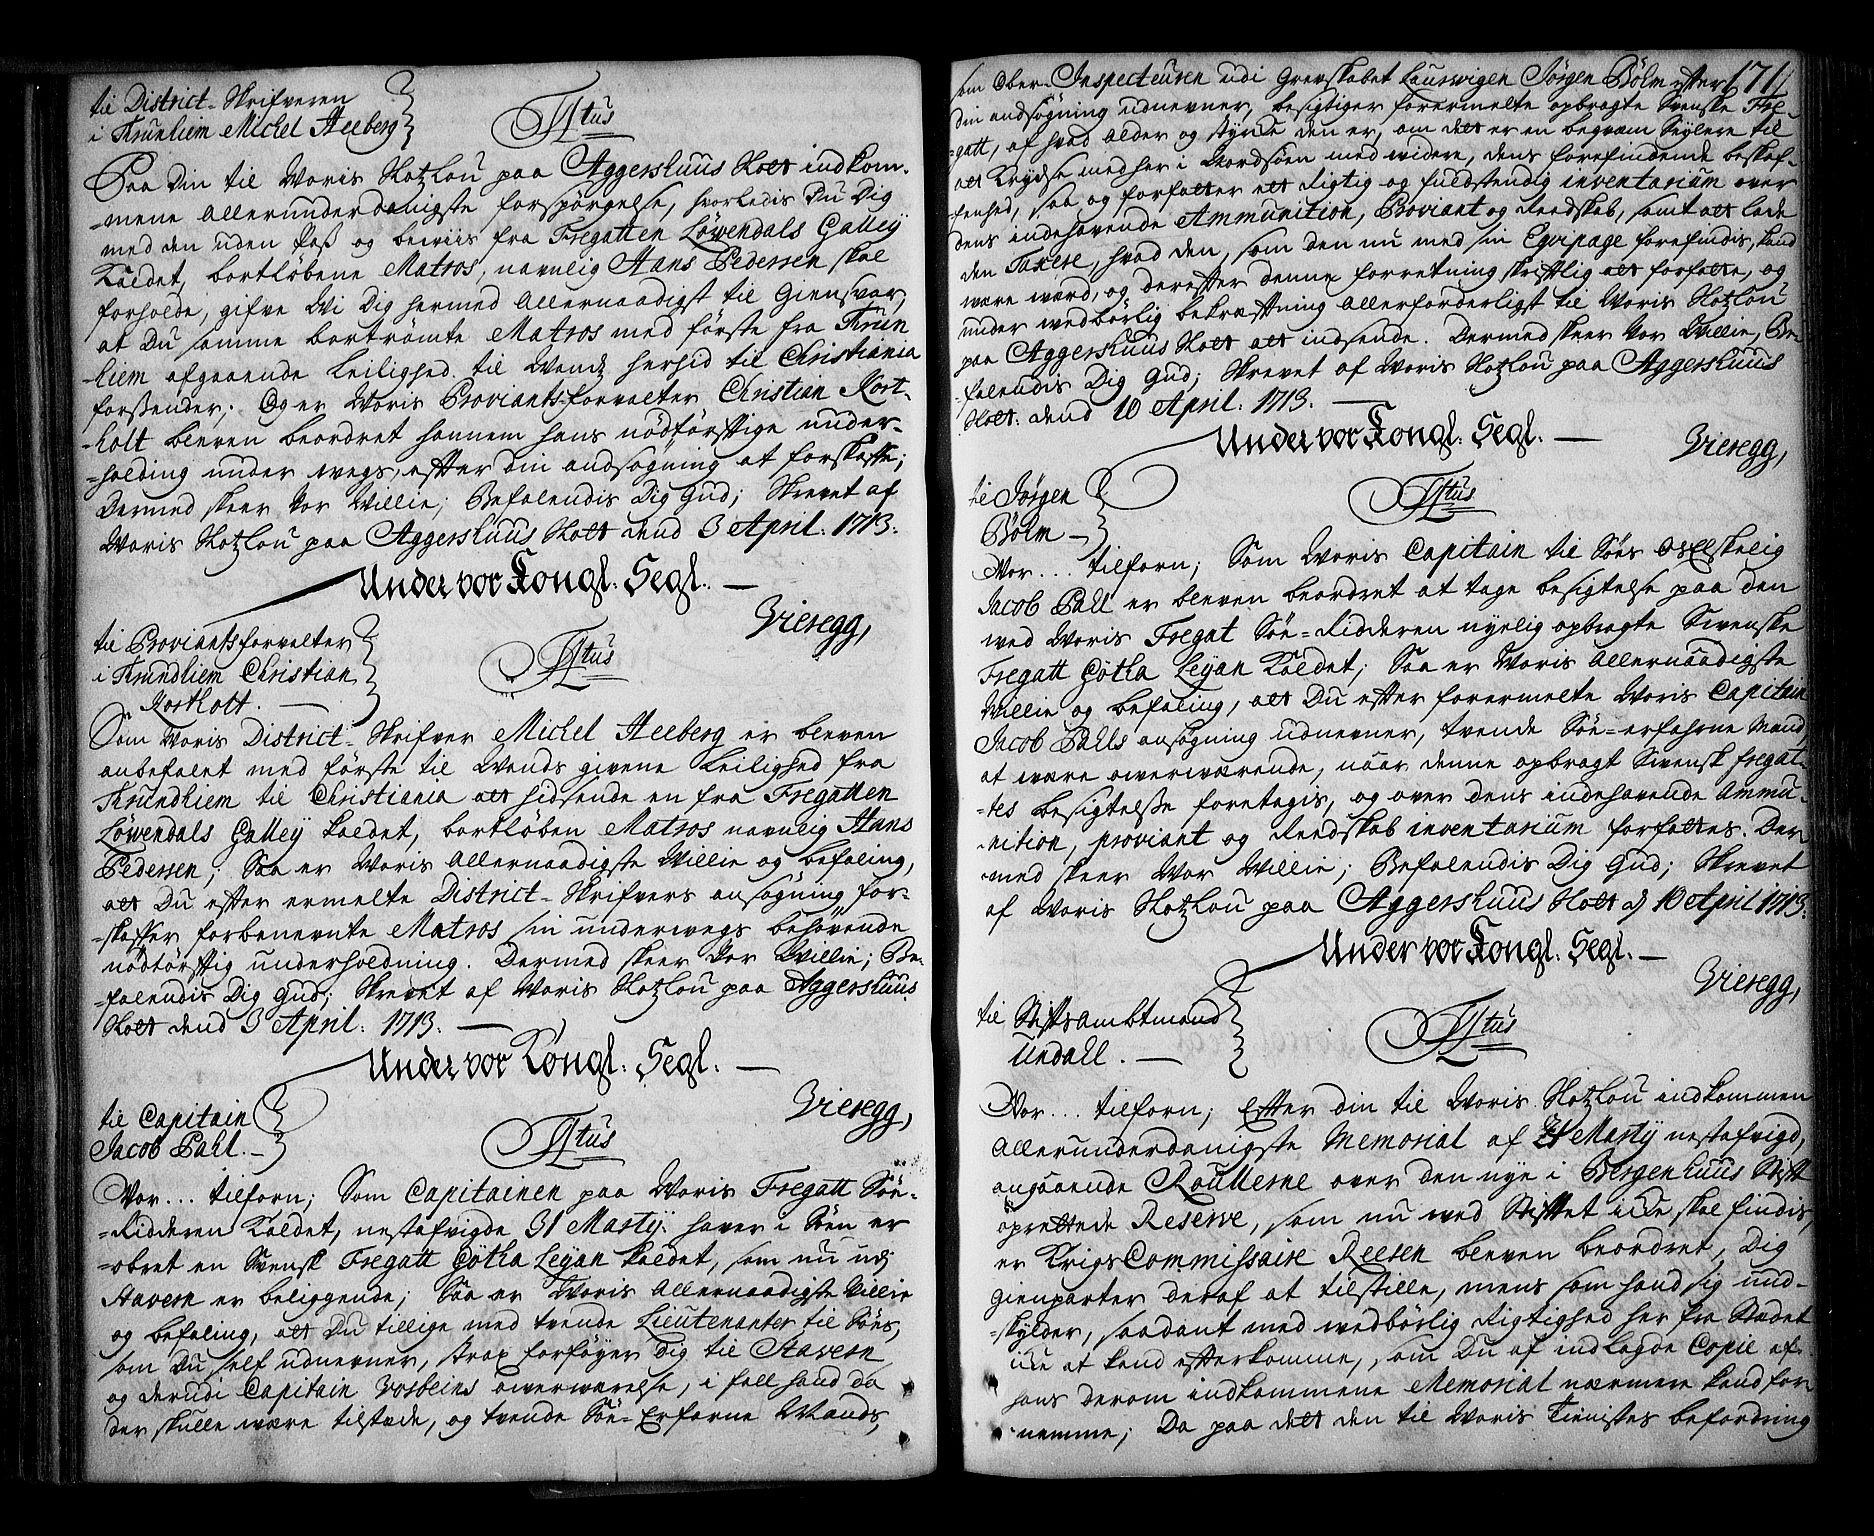 til District-Skrifveren
i Trunhiem Michel Heeberg
Ftus
Paa Din til Woris Slotzlou paa Aggershuus Slott indkom-
-mene allerunderdanigste forspörgelse, hvorledis Du Dig
med den uden Pass og beviis fra Fregatten Löwendals Galley
kaldet, bortløbene Matros, navnlig Hans Pedersen skal
forholde, gifve Wi Dig hermed allernaadigst til Giensvar,
at Du samme bortrömte Matros med förste fra Trun
-hiem afgaaende leilighed til Wands herhid til Christiania
forsender; Og er Woris Proviants-forvalter Christian Kort-
-holt bleven beordret hannem hans nödtörftige under-
-holding under weys, efter din ansögning at forskaffe;
Dermed skeer Vor Willie; Befalendis Dig Gud; Skrevet af
Woris Slotzlou paa Aggershuus Slott dend 3 April. 1713.
Under vor Kongl. Segl.
Vieregg,
til Proviantsforvalter
i Trundhiem Christian
Kortholt.
Ftus
Som Woris District-Skrifver Michel Heeberg er bleven
anbefalet med förste til Wands givene Leilighed fra
Trundhiem til Christiania att hidsende en fra Fregatten
Löwendals Galley kaldet, bortløben Matros navnlig Hans
Pedersen; Saa er Woris allernaadigste Willie og befaling,
att Du efter ermelte District-Skrifvers ansögning for-
-skaffer forbenevnte Matros sin underweys behövende
nödtörftig underholdning. Dermed skeer Vor Willie; Be-
-falendis Dig Gud; Skrevet af Woris Slotzlou paa Aggershuus
Slott dend 3 April. 1713.
Under vor Kongl. Segl.
Vieregg,
til Capitain
Jacob Pahl.
Ftus
Vor... tilforn; Som Capitainen paa Woris Fregatt Söe-
-Ridderen kaldet, nestafvigde 31 Martij. haver i Söen er
-obret en Svensk Fregatt Götha Leyan kaldet, som nu udj
Stavern er beliggende; Saa er Woris allernaadigste Willie
og befaling, att Du tillige med tvende Lieutenanter til Söes,
som Du self udnevner, strax forföyer dig til Stavern
og derudi Capitain Vosbeins overwærelse, i fall hand da
der skulle være tilstæde, og tvende Söe-Erfarne Mænds,
171
som Ober-Inspecteuren udi Grevskabet Laurwigen Jörgen Bölm efter
din ansögning udnevner, besigtiger forermelte opbragte Svenske Fre-
-gatt, af hvad alder og styrke den er, om dett er en beqvæm Seylere til
att krydse med her i Nordsöen med widere, dens forefindende beskaf-
-fenhed, saa og forfatter ett Rigtig og fuldstendig inventarium over
dens indehavende Ammunition, Proviant og Reedskab, samt att lade
den Taxere, hvad den, som den nu med sin Eqvipage forefindis, kand
være værd, og derefter denne forretning skriftlig att forfatte, og
under wedbörlig bekræftning allerforderligst til Woris Slotzlou
paa Aggershuus Slott att indsende. Dermed skeer Vor Willie, Be-
-falendis Dig Gud; Skrevet af Woris Slotzlou paa Aggershuus
Slott. dend 10 April. 1713.
Under vor Kongl. Segl.
Vieregg,
til Jörgen
Bölm
Ftus
Vor... tilforn; Som Woris Capitain til Söes Os Elskelig
Jacob Pahl er bleven beordret at tage besigtelse paa den
wed Woris Fregat Söe-Ridderen nyelig opbragte Swenske
Fregatt Götha Leyan kaldet; Saa er Woris allernaadigste
Willie og befaling, att Du efter forermelte Woris Capitain
Jacob Pahls ansögning udnevner, tvende Söe-erfahrne Mænd,
at være overværende, naar denne opbragt Swensk fregat-
-tes besigtelse foretagis, og over dens indehavende ammu-
-nition, proviant og Reedskab inventarium forfattes. Der-
-med skeer Wor Willie; Befalendis Dig Gud; Skrevet
af Woris Slotzlou paa Aggershuus Slott d 10 April 1713.
Under vor Kongl. Segl.
Vieregg,
til Stiftsambtmand
Undall.
Ftus
Vor... tilforn; Efter din til Woris Slotzlou indkommen
allerunderdanigste Memorial af 21 Martij nestafvigd,
angaaende Roullerne over den nye i Bergenhuus Stift
oprettede Reserve, som nu wed Stiftet icke skal findis,
er Krigs Commissaire Reesen bleven beordret, Dig
gienparter deraf at tilstille, mens som hand sig und-
-skylder, saadant med wedbörlig Rigtighed her fra Stædet
icke at kand efterkomme, som Du af indlagde Copie af
hans derom indkommene Memorial nærmere kand for-
nemme; Da paa dett den til Woris Tienistes befordring